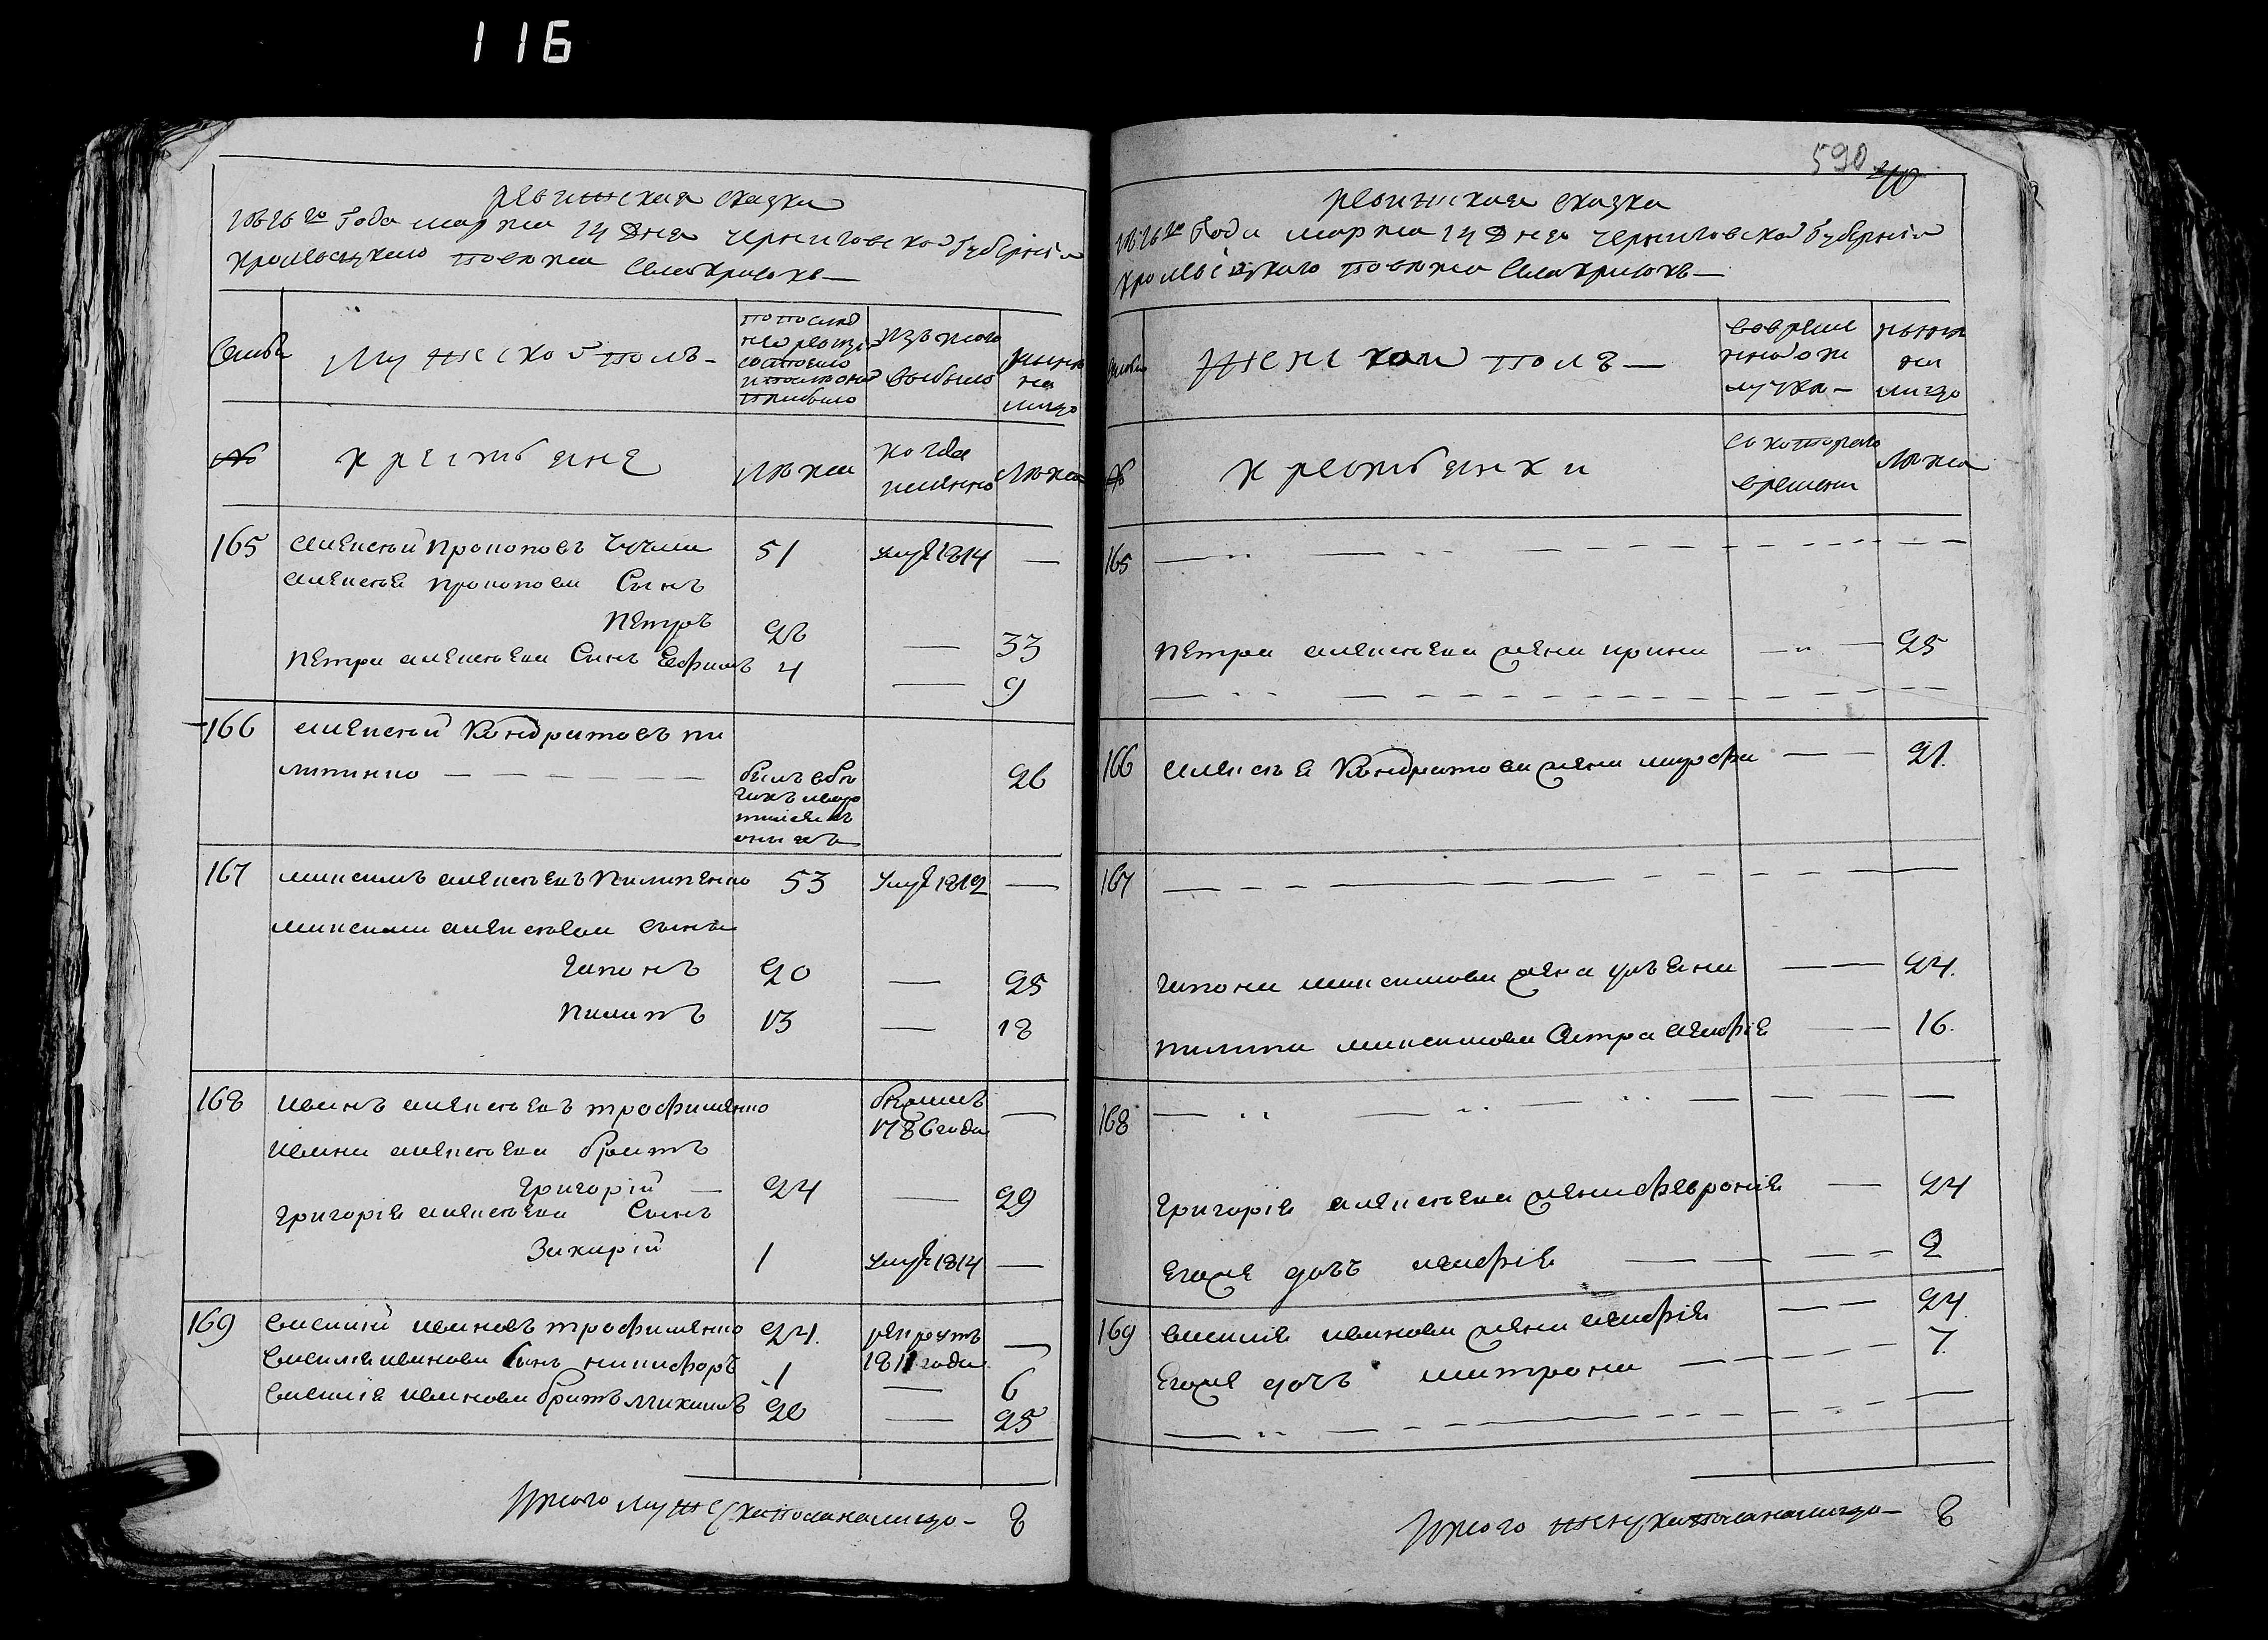 116
ревижская сказка
1816го года марта 14 дня черниговской губернїи
кролевецкого повета села
семьи
мужеской полъ —
по после
ней ревизи
состояло
и после оной
прибыло
изъ того
выбыло
ныне
на
лицо
№
крестьяне
лета
когда
именно
лета
165 алексей прокоповъ 51 умре 1814 —
алексея прокопова сынъ
петръ 26 — 33
петра алексеева сынъ ефимъ 4 — 9
166 алексей кондратовъ пи
липенко — — — — — — 26
былъ
167 максимъ алексеевъ пилипенко 53 умре 1812 —
максима алексеева сыны
гапонъ 20 — 25
пилипъ 13 — 18
168 иванъ алексеевъ трофименко бежалъ —
1786 года
ивана алексеева братъ
григорій — 24 — 29
григорія алексеева сынъ
захарій 1 умре 1814 —
169 василій ивановъ трофименко 24. рекрутъ —
василія иванова синъ никифоръ 1 1811 года 6
василія иванова братъ михаилъ 20 — 25
итого мужеска пола налицо — 8
590
ревижская сказка
1816го года марта 14 дня черниговской губернїи
кролевецкого повета села
семьи
женской полъ —
во време
нной от
лучке —
ныне
на
лицо
№
крестьянки
съ которого
времени
лета
165
петра алексеева жена ирина — „ — 25
166 алексея кондратова жена марфа — — 21.
167
гапона максимова жена улъяна — — 24.
пилипа максимова сестра агафїя — — 16.
168
григорія алексеева жена февронїя — 24
егоже дочъ агафїя — — — 2
169 василія иванова жена агафїя — — 24.
егоже дочъ матрона — 7.
итого женска пола налицо — 8